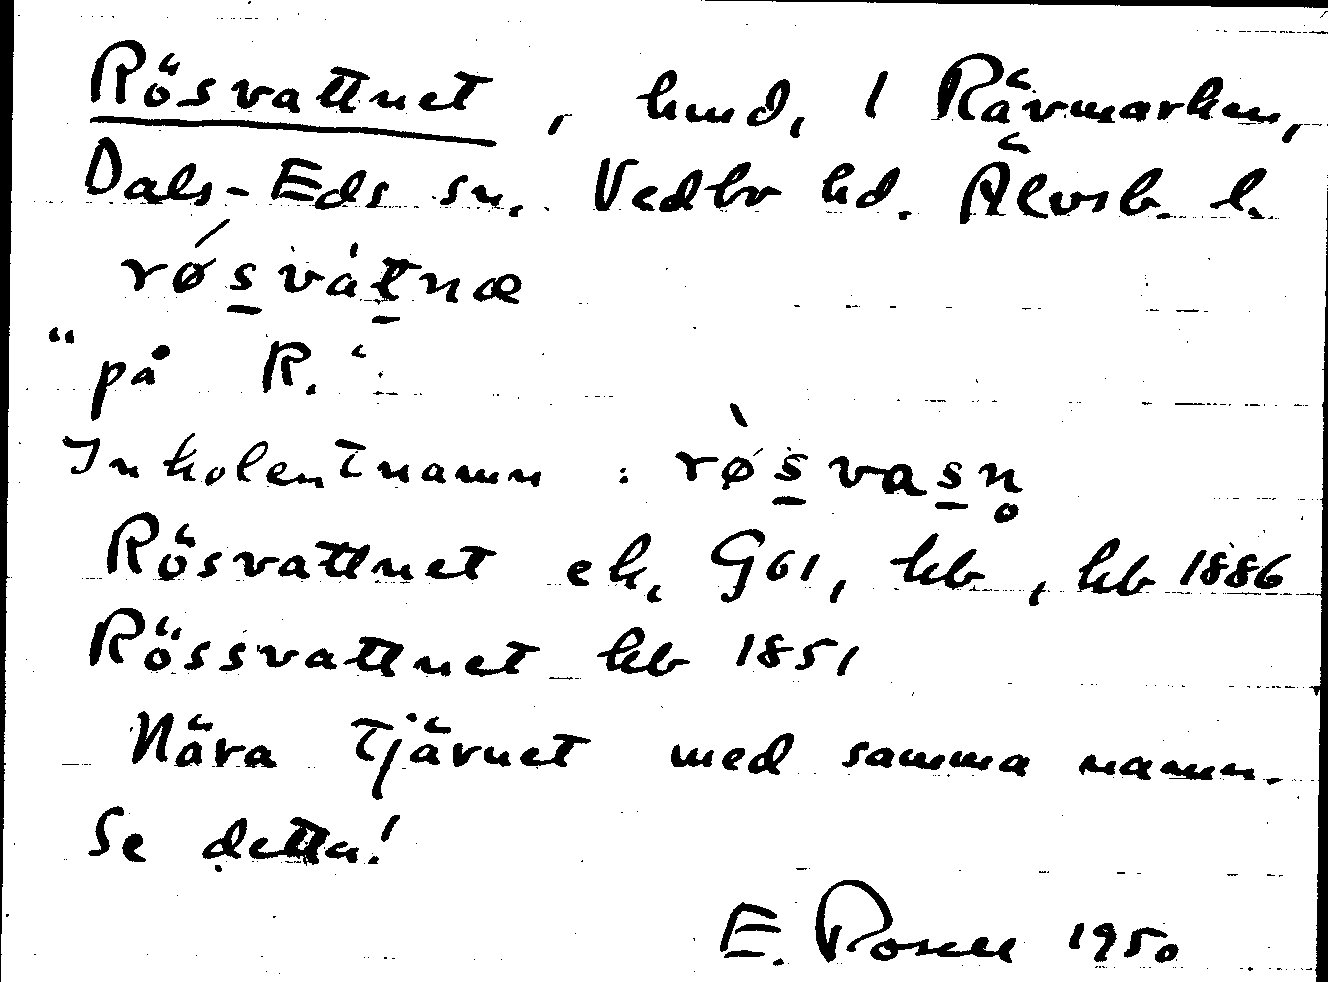 Rösvattnet, hmd, 1 Rävmarken,
Dals-Eds sn. Vedbo hd. Älvsb. l.
røsvàtnæ
"på R."
Inkolentnamn: røsvasn̥
Rösvattnet ek. G61, hb, hb 1886
Rössvattnet hb 1851
Nära tjärnet med samma namn.
Se detta!
E. Rosell 1950